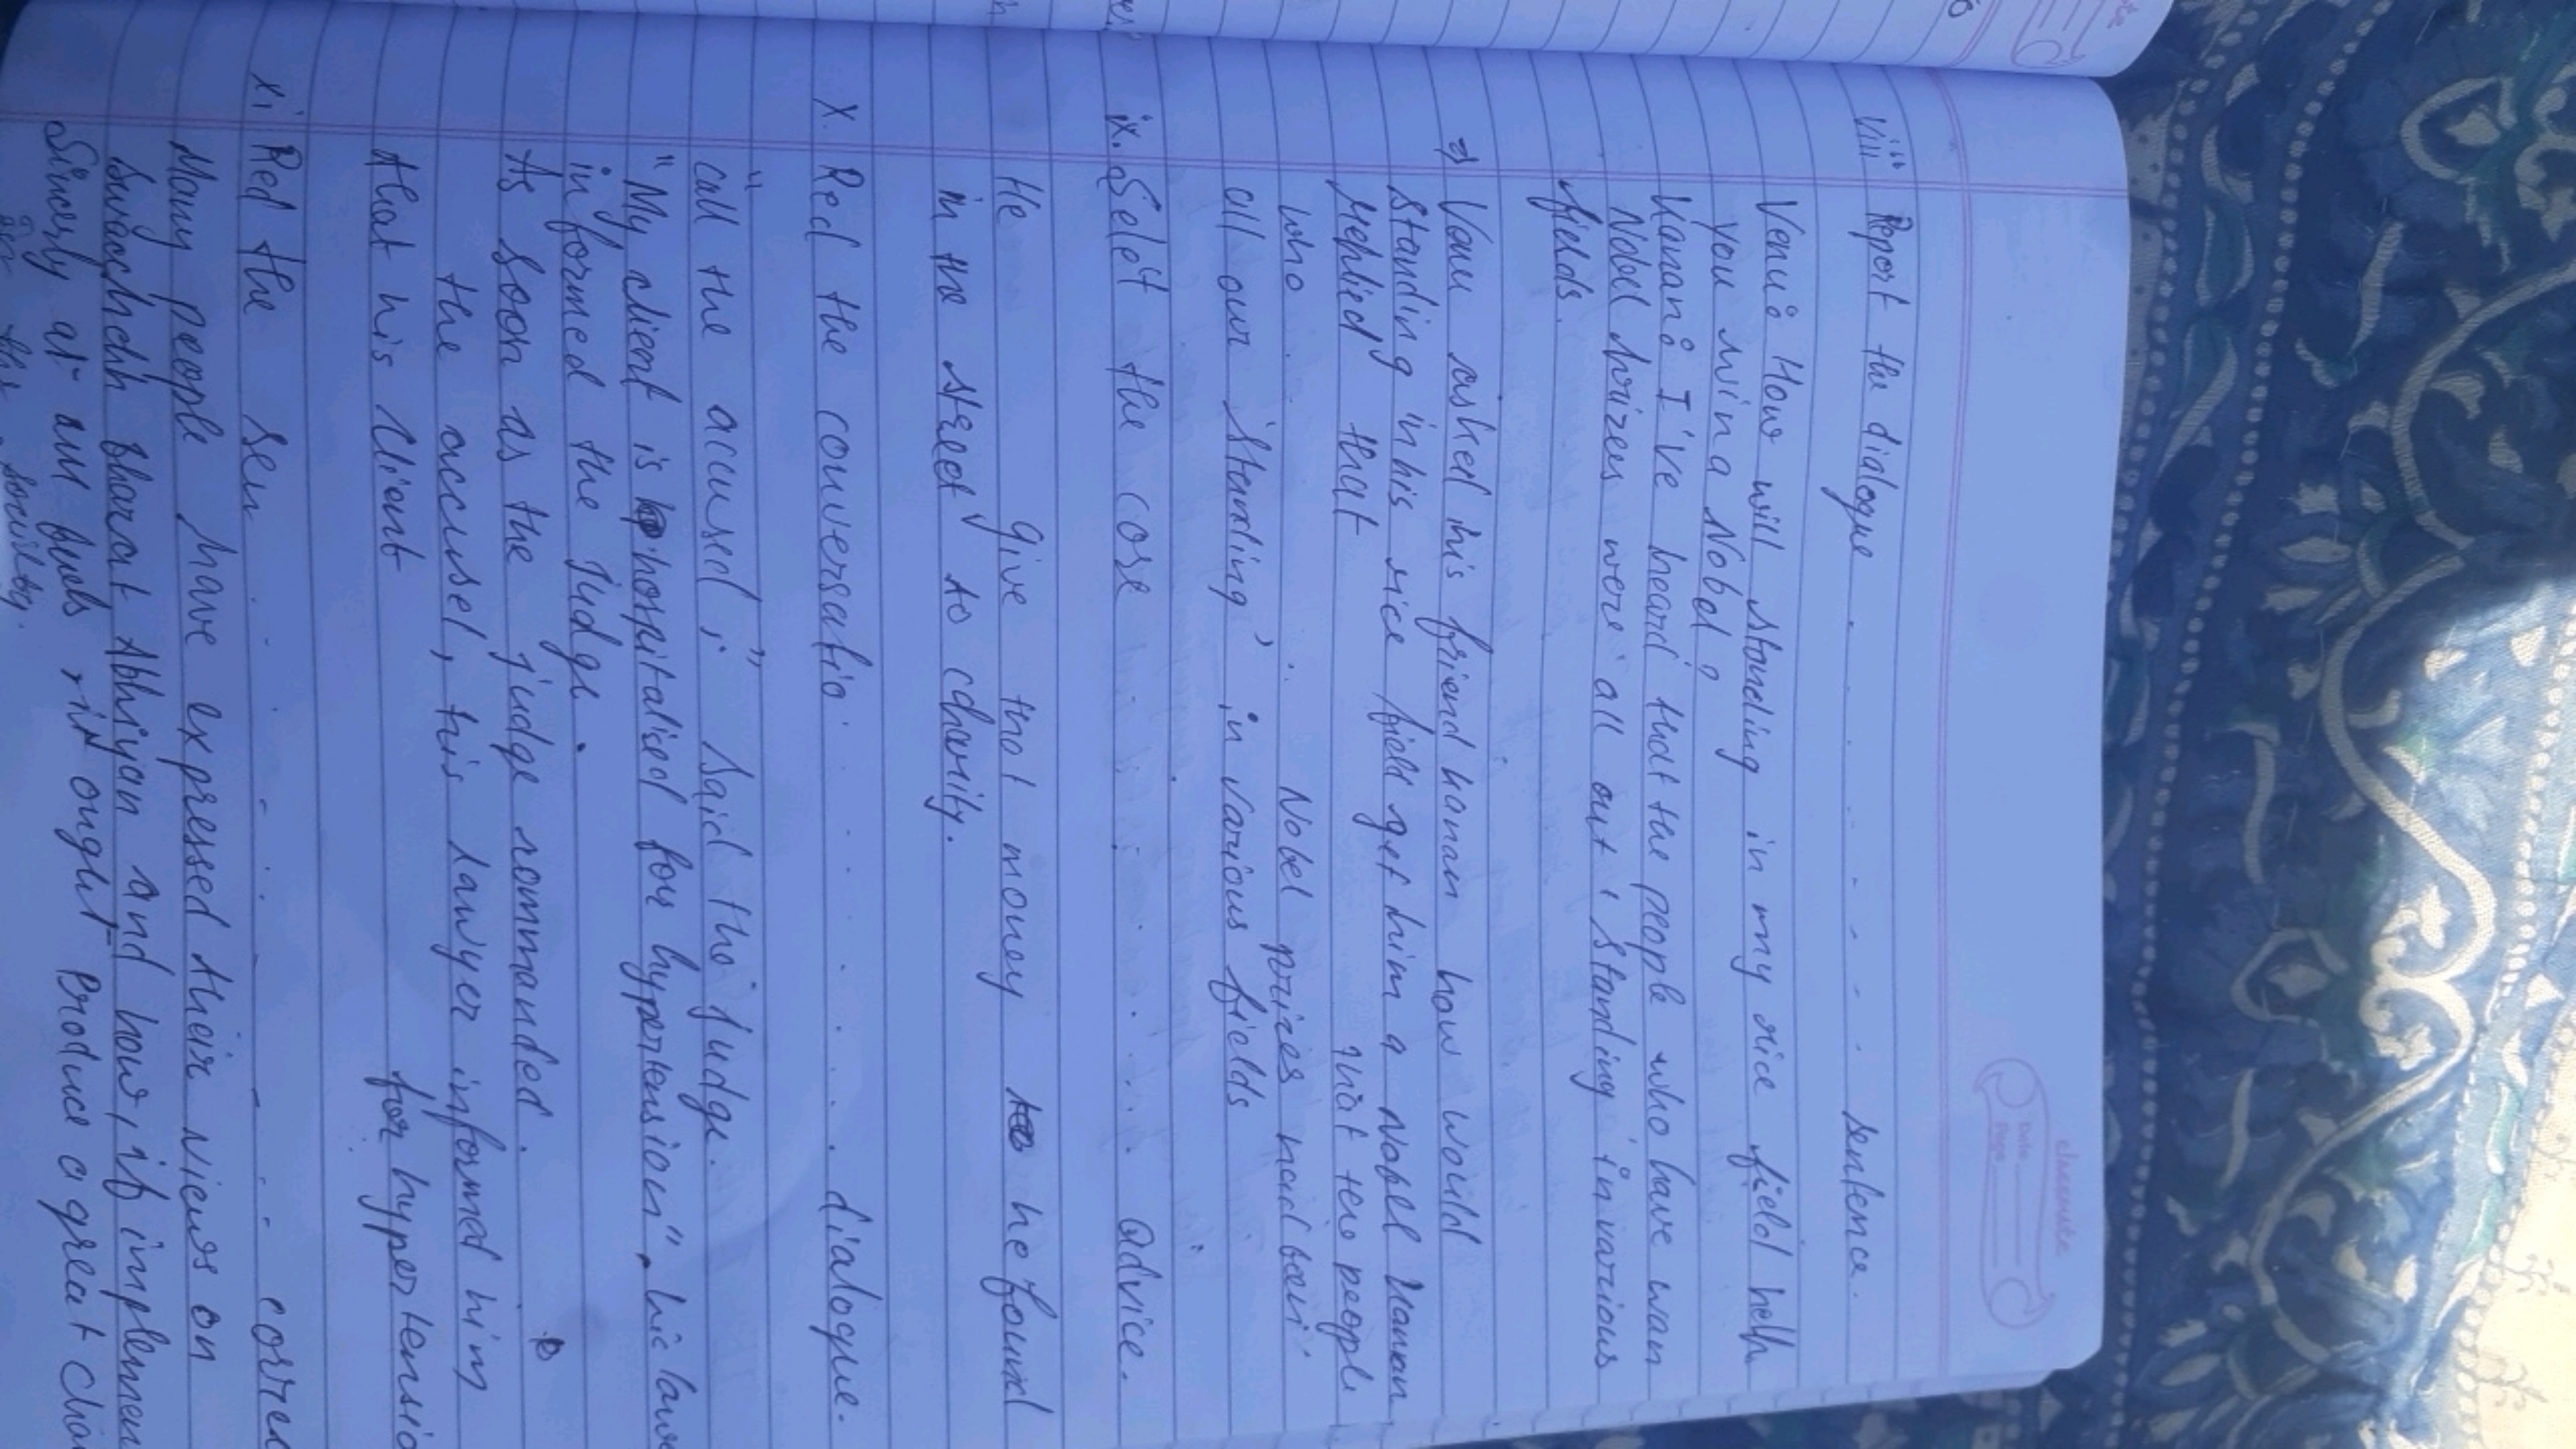 classmate
Date
Page
viii Report the dialogue . . . . . . . . . sentence.
Venu: How will standing in my rice field help
you win a Nobel?
Kanan: I've heard that the people who have wan
Nobel prizes were all out, standing in various
fields.
⇒ Vanu asked his friend Kanan how would
standing in his rice field get him a Nobel Kanan
replied that that the people
who Nobel prizes had been
all our 'standing' in various fields
ix. Selet the cose . . . . . . . . Advice.
He give that money to he found
in the street to charity.
x. Red the conversatio . . . . . . . dialogue.
"call the accused," said the judge.
"My client is hospitalised for hypertension", his law
informed the judge.
As soon as the judge rommanded.
the accused, his lawyer informed him
that his client for hypertensio
xi Red the sen . . . . . . . . . correc
Many people have expressed their views on
Swachch Bharat Abhiyan and how, if implemen
Sincerly at all levels, it ought produce a great chan
society.